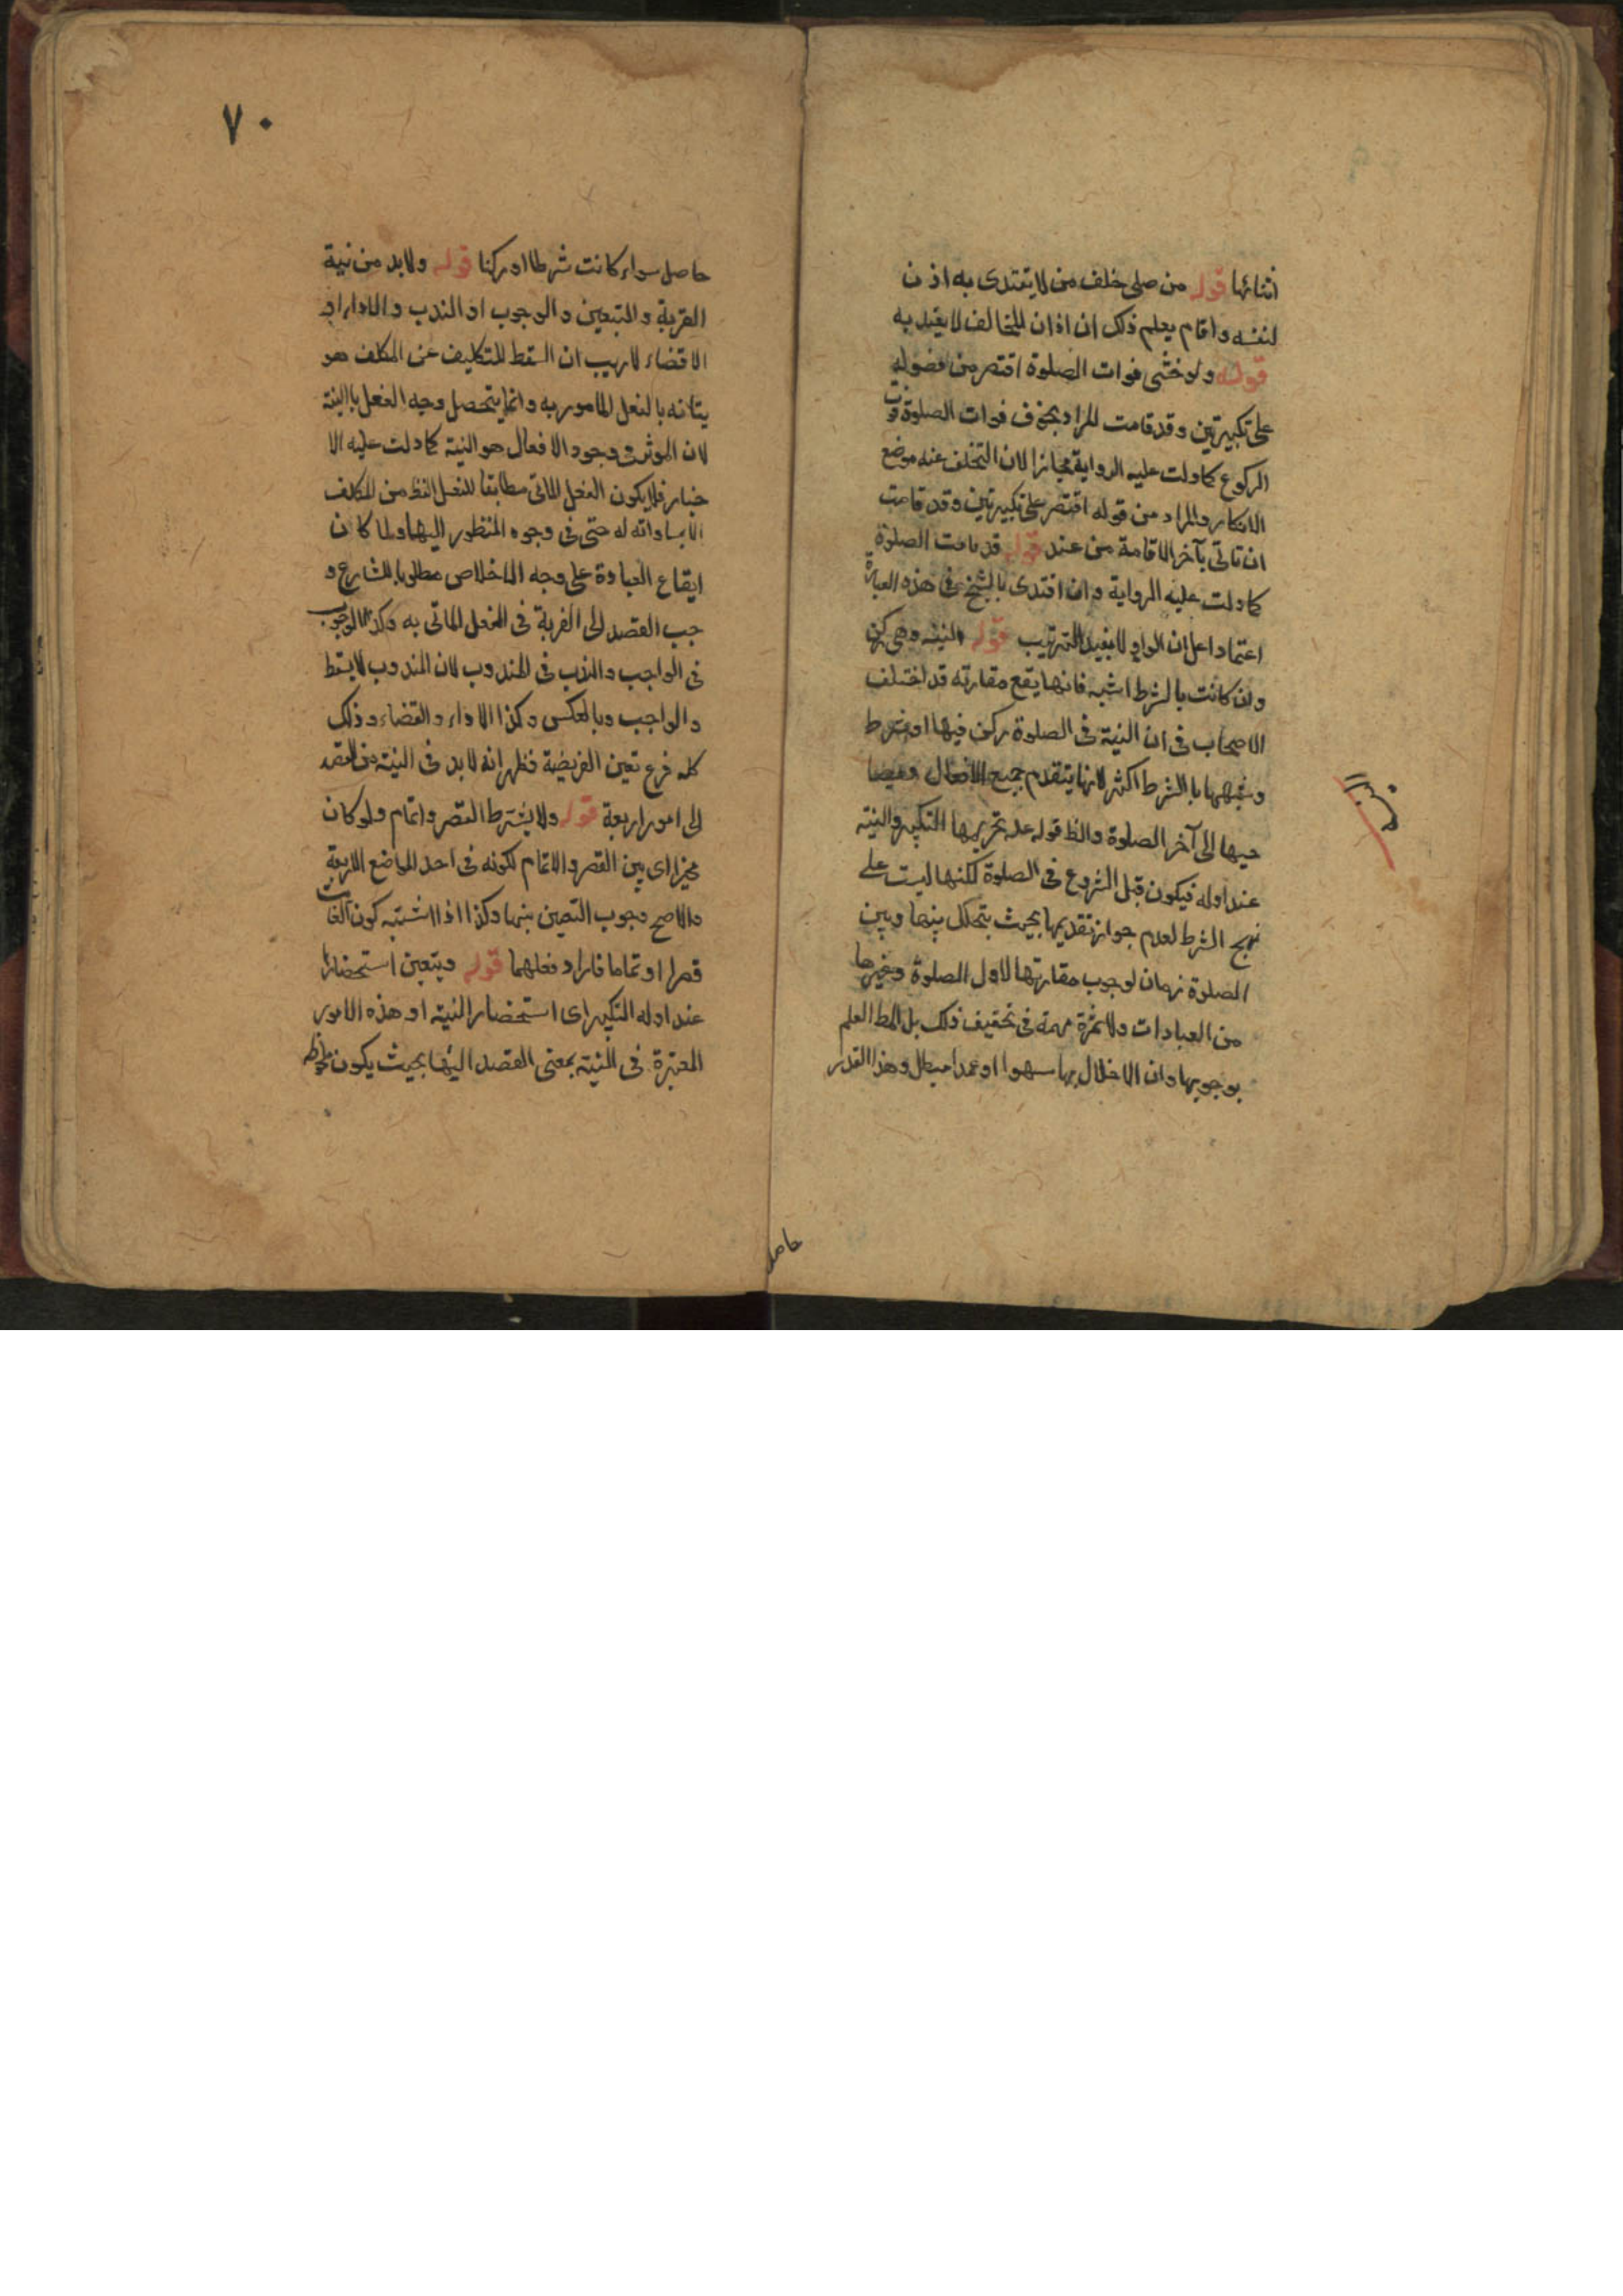 اثنائها قوله من صلى خلف من لا يقتدى به اذن
لنفسه واقام يعلم ذلك ان اذان المخالف لا يعيد به
قوله ولو خشى فوات الصلوة اقتصر من فصوله
على تكبيرتين وقد قامت المراد بخوف فوات الصلوة فوت
الركوع كما دلت عليه الرواية مجازا لان التخلف عنه موضع
الانكار والمراد من قوله اقتصر على تكبيرتين وقد قامت
ان تاتى بآخر الاقامة من عند قوله قد قامت الصلوة
كما دلت عليه الرواية وان اقتدى بالشيخ فى هذه العبارة
اعتمادا على ان الواو لا يفيد الترتيب قوله النية وهى ركن
وان كانت بالشرط اشبه فانها يقع مقارنه قد اختلف
الاصحاب فى ان النية فى الصلوة ركن فيها او شرط
وشبهها باالشرط اكثر لانها يتقدم جميع الافعال ويصا
حبها الى آخر الصلوة والظ قوله عليه تحريمها التكبير والنية
عند اوله فيكون قبل الشروع فى الصلوة لكنها ليست على
نهج الشرط لعدم جواز تقديمها بحيث يتخلل بينها وبين
الصلوة زمان لوجوب مقارنتها لاول الصلوة وغيرها
من العبادات ولا ثمرة مهمة فى تحقيق ذلك بل المط العلم
بوجوبها وان الاخلال بها سهوا او عمدا مبطل وهذا القدر
النية
حاصل
٧٠
حاصل سواء كانت شرطا او ركنا قوله ولا بد من نية
القربة والتعيين والوجوب او الندب والاداء او
الاقضاء لا ريب ان السقط للتكليف عن المكلف هو
يتانه بالفعل المامور به وانما يتحصل وجه الفعل باالنية
لان الموثر فى وجود الافعال هو النية كما دلت عليه الا
خبار فلا يكون الفعل الماتى مطابقا للفعل النظ من المكلف
الا بمساواته له حتى فى وجوه المنظور اليها ولما كان
ايقاع العبادة على وجه الاخلاص مطلوبا للشارع و
جب القصد الى القربة فى الفعل الماتى به وكذا الوجوب
فى الواجب والندب فى المندوب لان المندوب لا يسقط
والواجب وبالعكس وكذا الاداء والقضاء وذلك
كله فرع تعين الفريضة فظهر انه لا بد فى النية من القصد
الى امور اربعة قوله ولا يشترط القصر واتمام ولو كان
مخيرا اى بين القصر والاتمام لكونه فى احد المواضع الاربعة
والاصح وجوب التعين بينها وكذا اذا اشتبه كون الفائت
قصرا او تماما فاراد فعلهما قوله ويتعين استحضارها
عند اوله التكبير اى استحضار النية او هذه الامور
المعتبرة فى النية بمعنى القصد اليها بحيث يكون ملحوظه